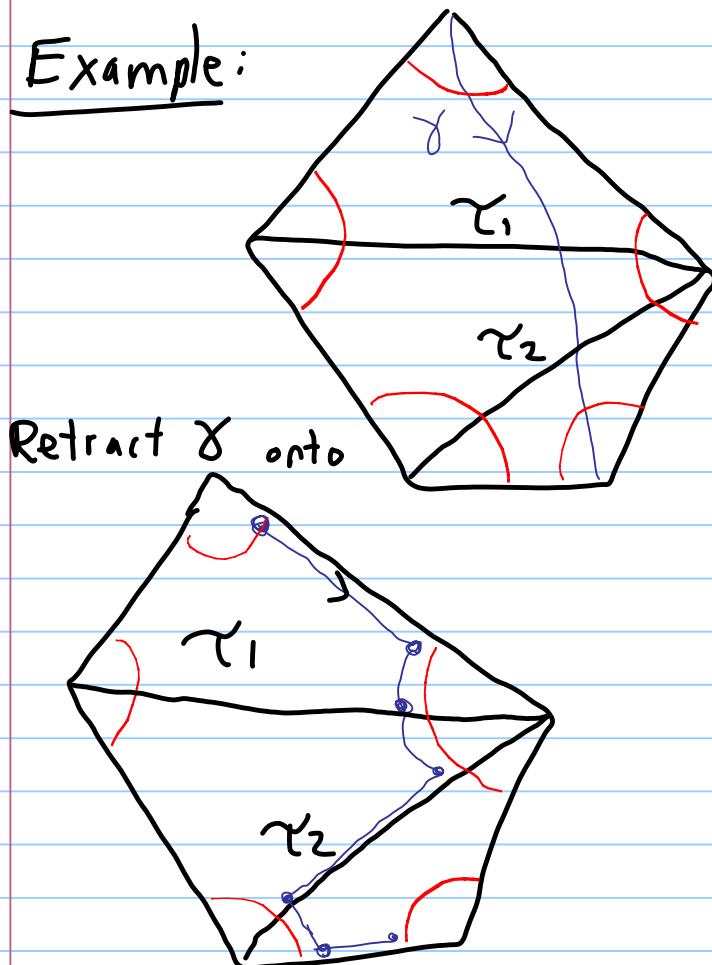 Example:
γ
τ₁
τ₂
Retract γ onto
τ₁
τ₂